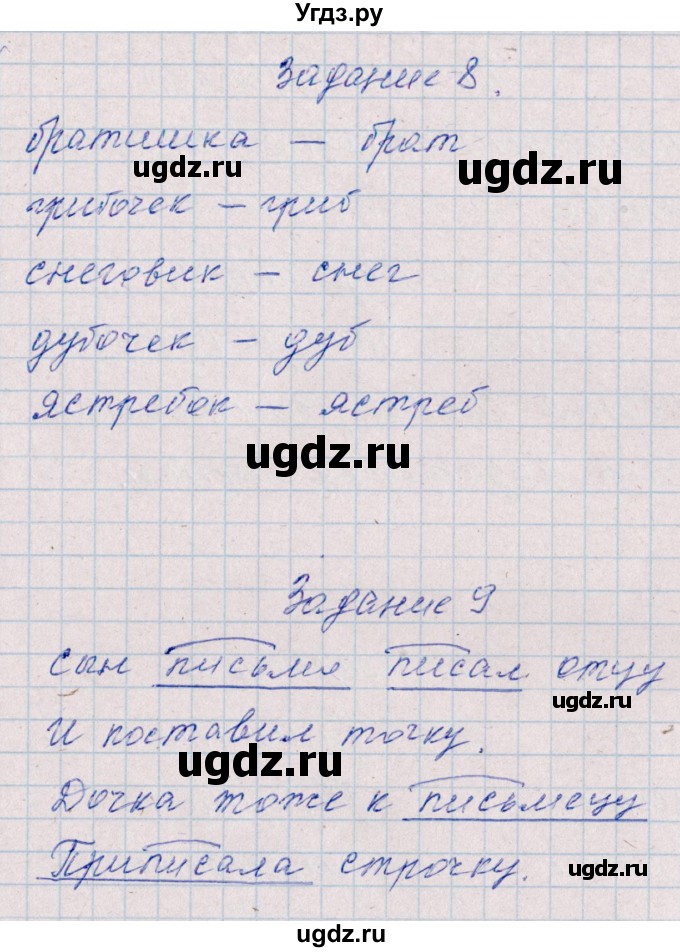 Угдз.ру
Задание 8.
братишка — брат
ugdz.ru ugdz.ru
грибочек — гриб
снеговик — снег
дубочек — дуб
ястребок — ястреб
ugdz.ru
Задание 9
сын письмо писал отцу
ugdz.ru
и поставил точку.
ugdz.ru
Дочка тоже к письмецу
Приписала строчку.
ugdz.ru
ugdz.ru